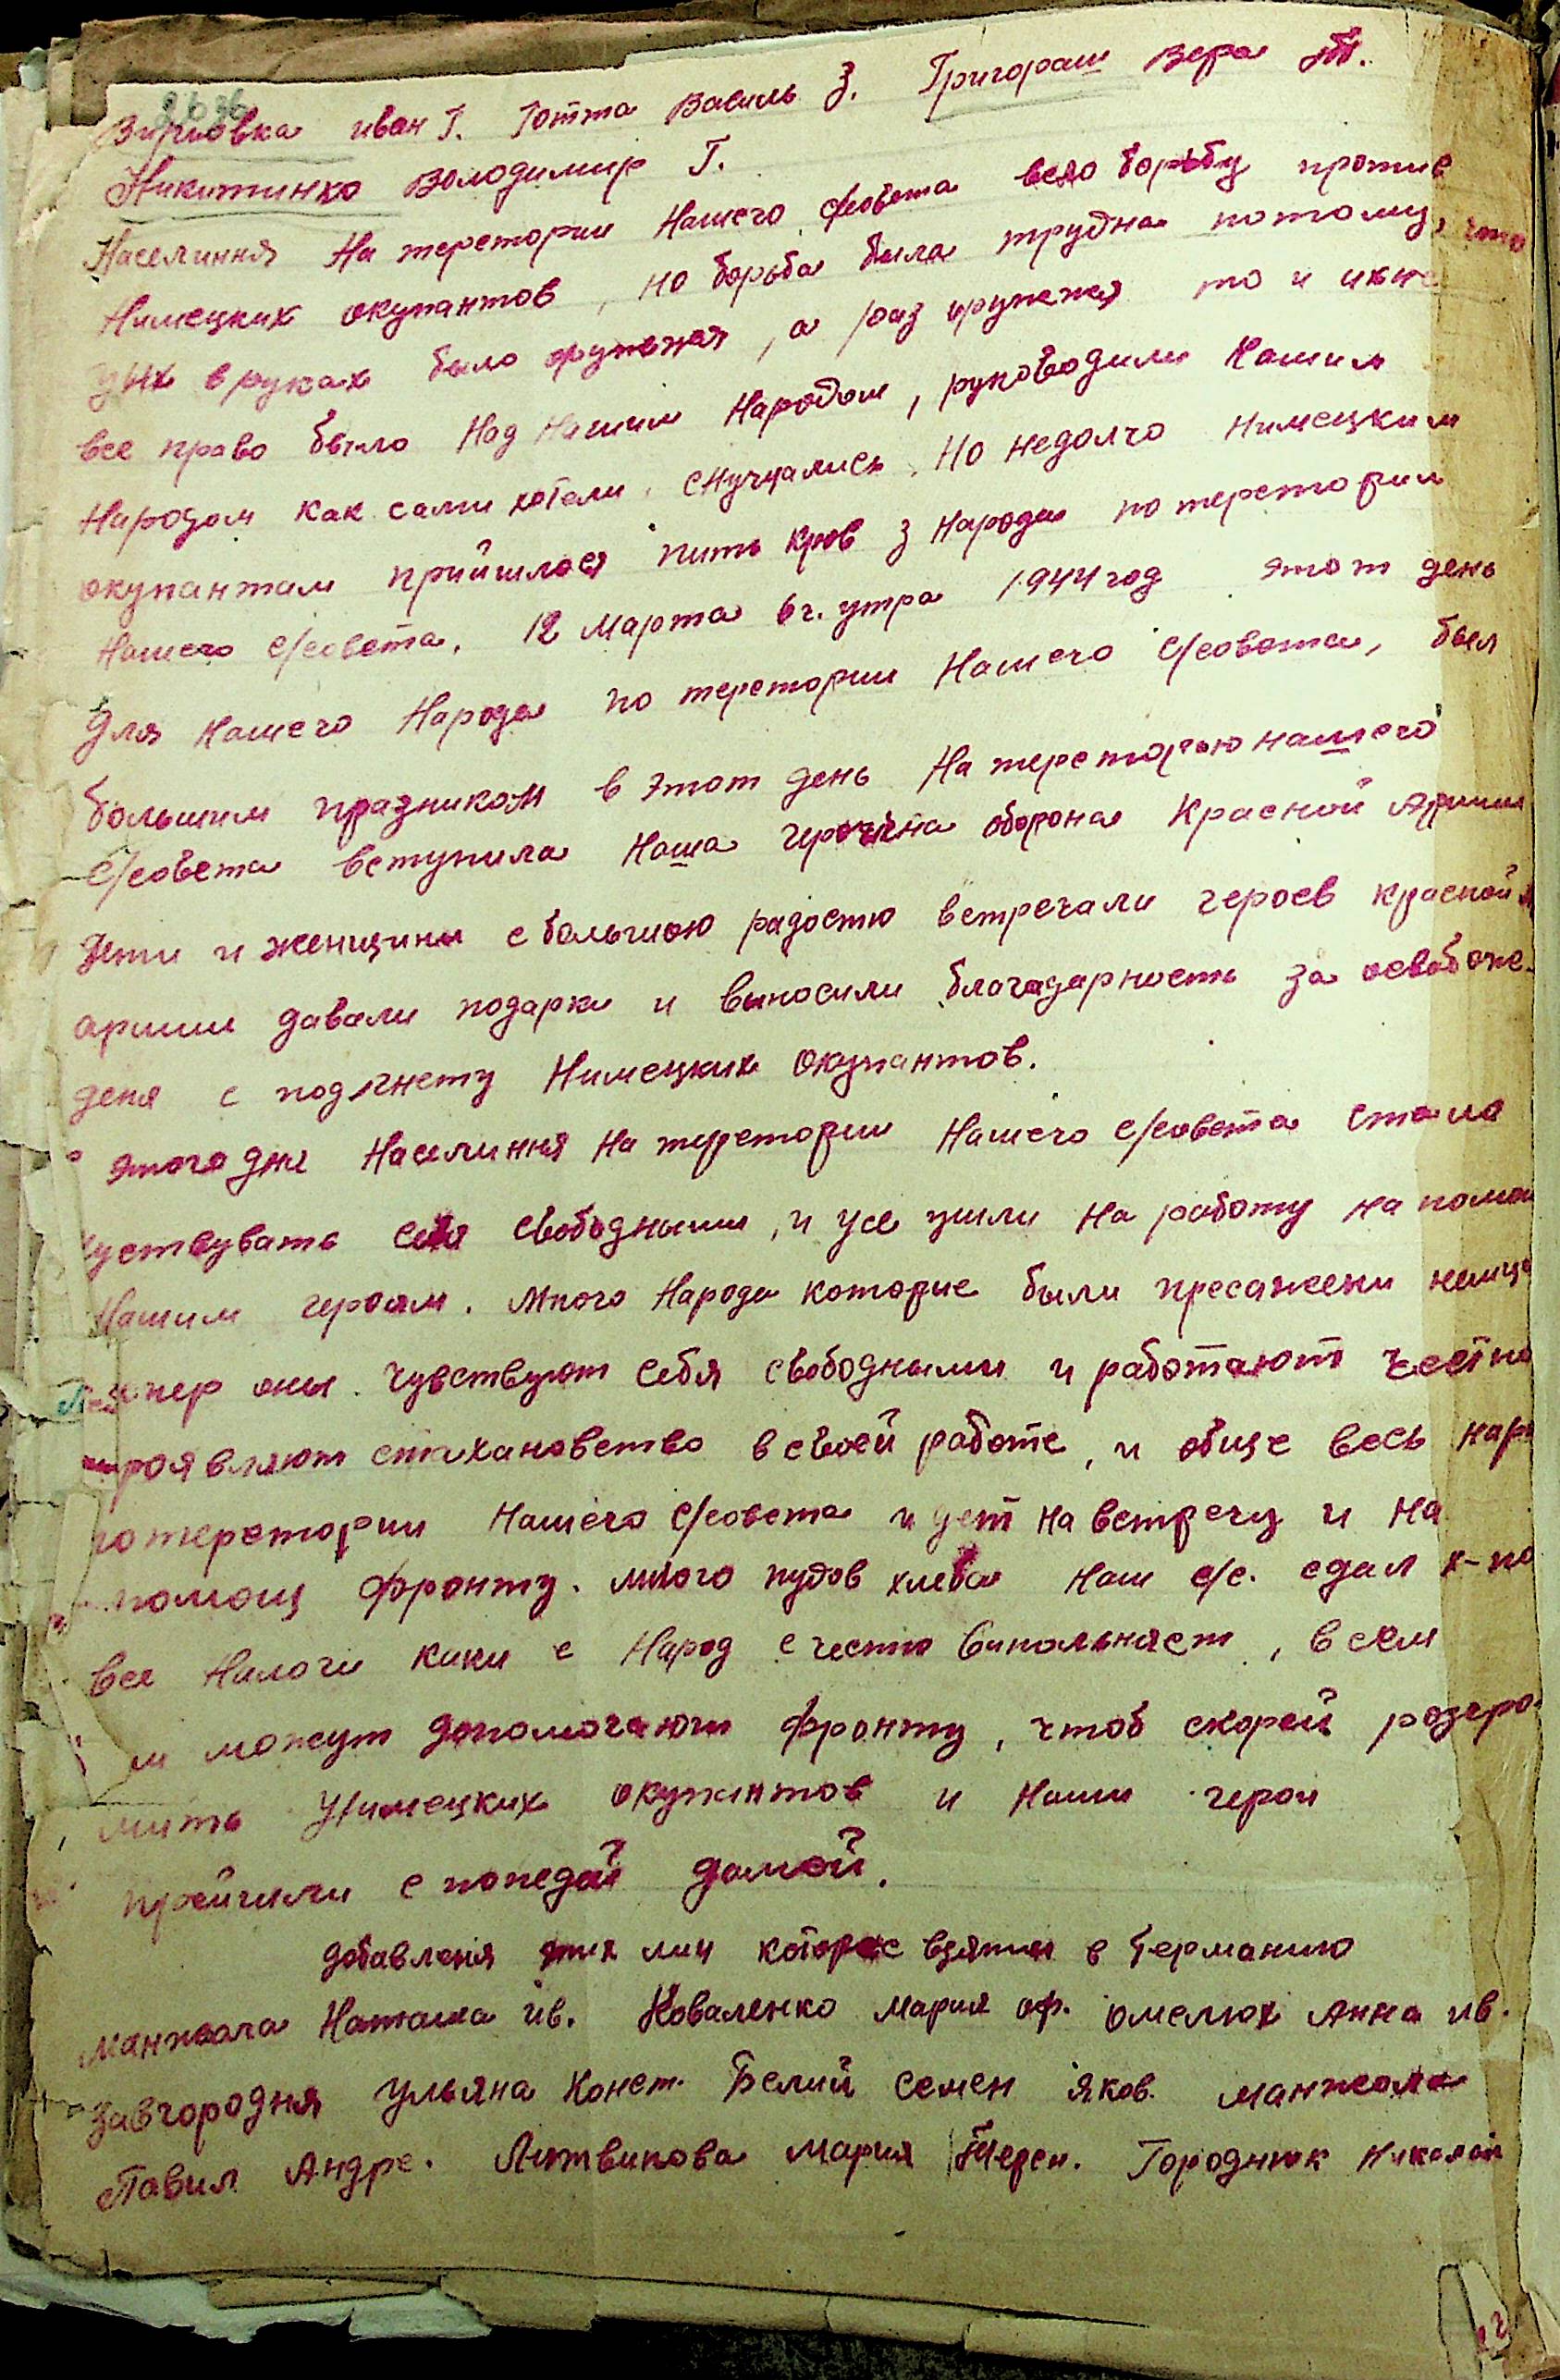 Вирьовка иван Г. Готта Василь З. Григораш Вера М.
Никитинко Володимир Г.
Населиння На теретории Нашего с/совета вело борьбу против
Нимецких окупантов, но борьба была трудна потому, что
у них в руках было оружжия, а раз оружжя то и ихне
все право было Над Нашим Народом, руководили Нашим
Народом как сами хотели, снущались. Но недолго Нимецким
окупантам прийшлося пить кров з Народа по теретории
Нашего с/совета. 12 марта 6ч. утра 1944 год этот день
Для Нашего Народа по теретории Нашего с/совета, был
большим празником в этот день На тереторью нашего
с/совета вступила Наша героична оборона Красной Армии
Дети и женщины с большою радостю встречали героев красной
армии давали подарки и выносили благодарность за освобожс-
деня с под гнету Нимецких Окупантов.
этого дня Населиння На теретории Нашего с/совета стала
чуствувать себя свободными, и усе ушли На работу на помощ
Нашим героям. Много Народа которие были пресажени немце
Тепер они чувствуют себя свободными и работают честно
проявляют стахановство в своей работе, и обще весь нар
по теретории Нашего с/совета идет На встречу и На
помощ фронту. много пудов хлеба Наш с/с. сдал к-по
все Налоги каки е Народ с честю Випольняет, всем
м можут допомогают фронту, чтоб скорей розгро
мить Нимецких окупантов и Наши герои
прейшли с попедой домой.
добавленя этих лиц которые взяти в Германию
Манжола Наташа ив. Коваленко Мария оф. Омелюх Анна ив.
Завгородня Ульяна Конст. Белий Семен Яков. Манжола
Павил Андре. Литвинова Мария Терен. Городнюк Николай